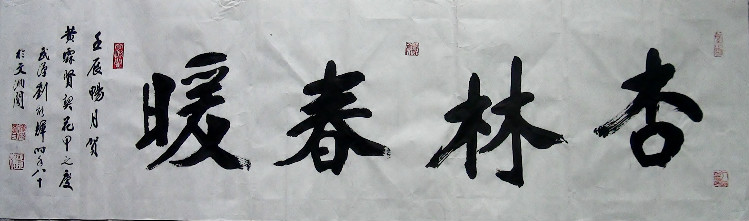 杏林春暖
壬辰暢月賀
黄霖賢契花甲之慶
武淳劉 輝时年八十
於文洲閣